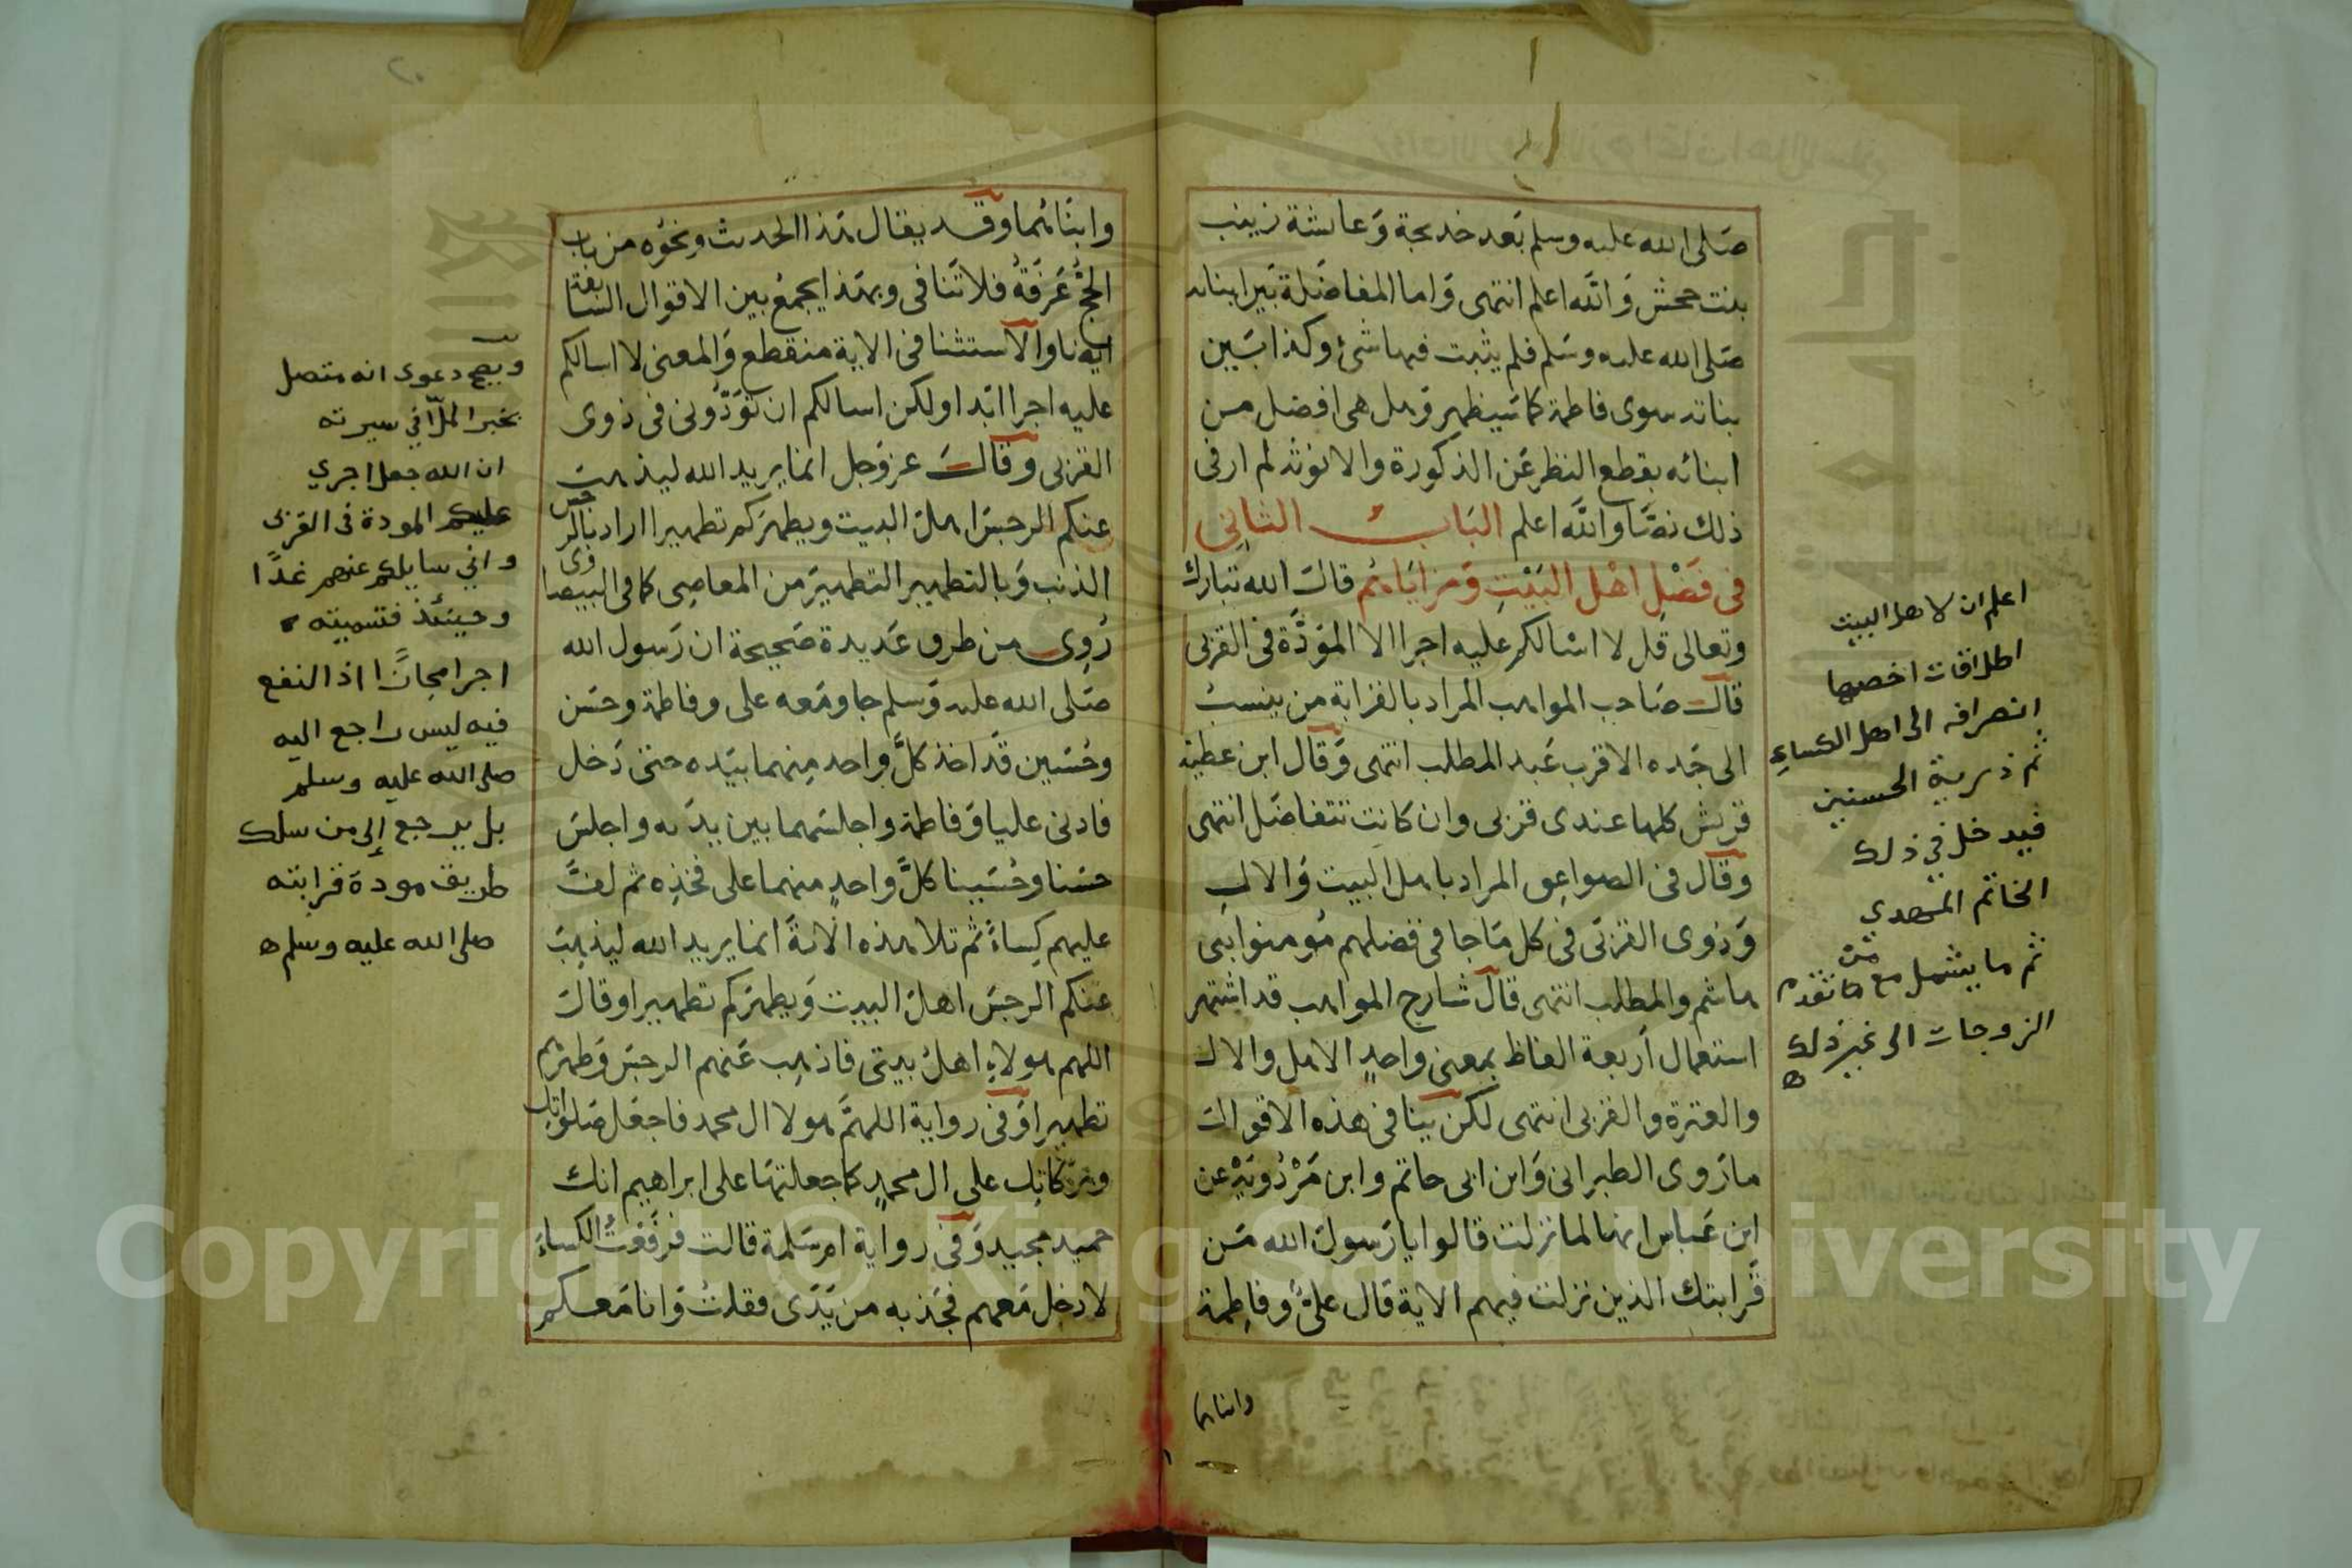 صلى الله عليه وسلم بعد خديجة وعائشة زينب
بنت جحش والله اعلم انتهى واما المفاضلة بين ابنائه
صلى الله عليه وسلم فلم يثبت فيها شئ وكذا بين
بناته سوى فاطمة كما سيظهر وهل هى افضل من
ابنائه بقطع النظر عن الذكورة والانوثة لم ار فى
ذلك نصا والله اعلم الباب الثانى
فى فضل اهل البيت ومزاياهم قال الله تبارك
وتعالى قل لا اسالكم عليه اجرا الا المودة فى القربى
قال صاحب المواهب المراد بالقرابة من ينسب
الى جده الاقرب عبد المطلب انتهى وقال ابن عطية
قريش كلها عندى قربى وان كانت تتفاضل انتهى
وقال فى الصواعق المراد باهل البيت والال
وذوى القربى فى كل ما جا فى فضلهم مومنوا بنى
هاشم والمطلب انتهى قال شارح المواهب قد اشتهر
استعمال أربعة الفاظ بمعنى واحد الاهل والال
والعترة والقربى انتهى لكن ينافى هذه الاقوال
ما روى الطبرانى وابن ابى حاتم وابن مردويه عن
ابن عباس انها لما نزلت قالوا يا رسول الله من
قرابتك الذين نزلت فيهم الاية قال على وفاطمة
وابناهما
اعلم ان لاهل البيت
اطلاقات اخصها
انصرافه الى اهل الكساء
ثم ذرية الحسنين
فيدخل في ذلك
الخاتم المهدي
ثم ما يشمل مع من تقدم
الزوجات الى غير ذلك
ه
٢٠
وابناهما وقد يقال هذا الحديث ونحوه من باب
الحج عرفة فلا تنافى وبهذا يجمع بين الاقوال السابقة
ايضا والاستثنا فى الاية منقطع والمعنى لا اسالكم
عليه اجرا ابدا ولكن اسالكم ان تودونى فى ذوى
القربى وقال عز وجل انما يريد الله ليذهب
عنكم الرجس اهل البيت ويطهركم تطهيرا اراد بالرجس
الذنب وبالتطهير التطهير من المعاصى كما فى البيضاوى
روى من طرق عديدة صحيحة ان رسول الله
صلى الله عليه وسلم جا ومعه على وفاطمة وحسن
وحسين قد اخذ كل واحد منهما بيده حتى دخل
فادنى عليا وفاطمة واجلسهما بين يديه واجلس
حسنا وحسينا كل واحد منهما على فخذه ثم لف
عليهم كساء ثم تلا هذه الاية انما يريد الله ليذهب
عنكم الرجس اهل البيت ويطهركم تطهيرا وقال
اللهم هولاء اهل بيتى فاذهب عنهم الرجس وطهرهم
تطهيرا وفى رواية اللهم هولا ال محمد فاجعل صلواتك
وبركاتك على ال محمد كما جعلتها على ابراهيم انك
حميد مجيد وفى رواية ام سلمة قالت فرفعت الكساء
لادخل معهم فجذبه من يدى فقلت وانا معكم
ويصح دعوى انه متصل
بخبر الملا في سيرته
ان الله جعل اجري
عليكم المودة فى القربى
واني سايلكم عنهم غدا
وحينئذ فتسميته
اجرا مجازا اذ النفع
فيه ليس راجع اليه
صلى الله عليه وسلم
بل يرجع إلى من سلك
طريق مودة قرابته
صلى الله عليه وسلم ه
Copyright © King Saud University